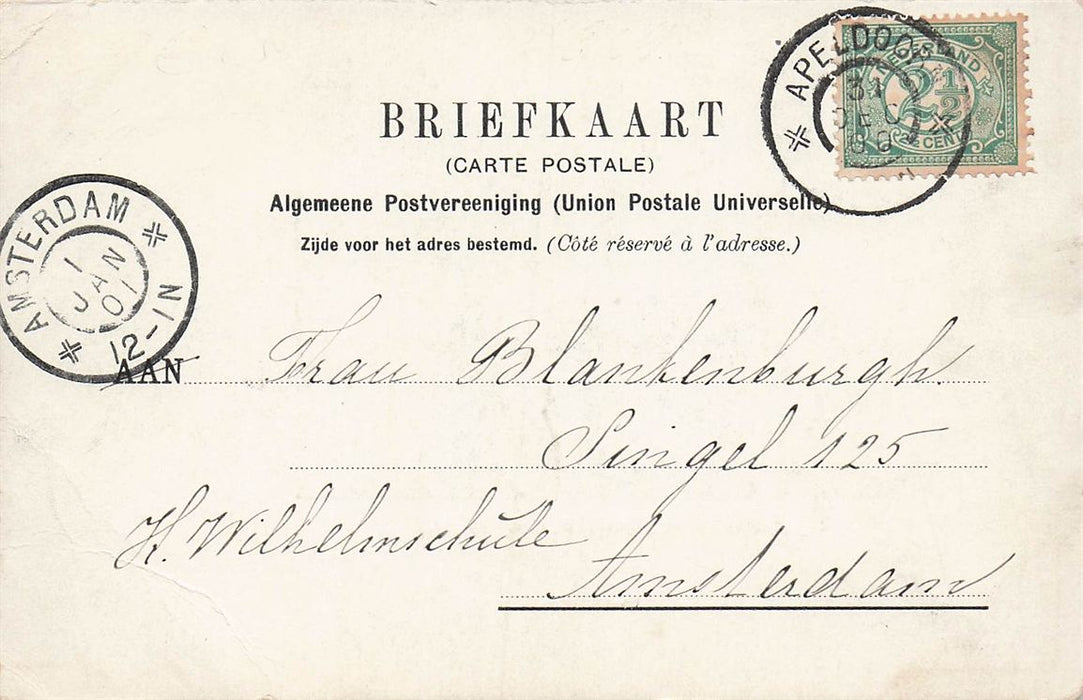 BRIEFKAART
(CARTE POSTALE)
Algemeene Postvereeniging (Union Postale Universelle)
Zijde voor het adres bestemd. (Côté réservé à l'adresse.)
APELDOORN
31
DEC
00
NEDERLAND
2½
2½ CENT
AMSTERDAM
1
JAN
01
12-1N
AAN Frau Blankenburgh.
Singel 125
K. Wilhelmschule
Amsterdam